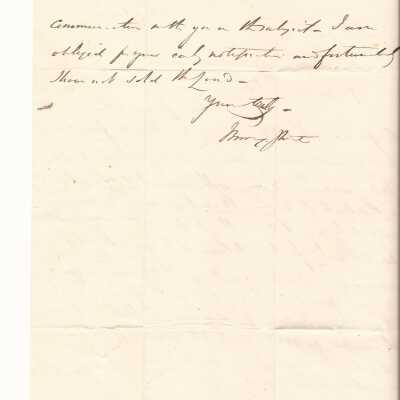 communication with you on the subject - I am
obliged for your early notification and fortunately
I have not sold the Land -
Yours truly -